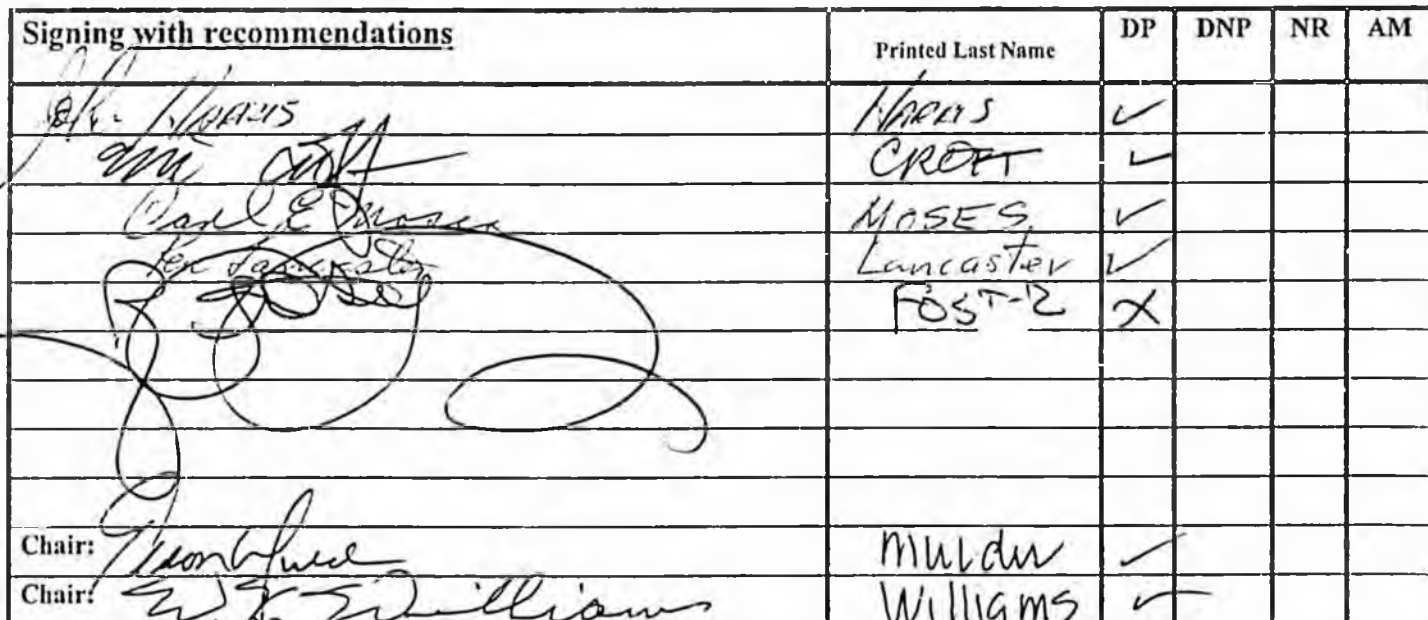 Signing with recommendations Printed Last Name DP DNP NR AM
John Harris HARRIS ✓
CROFT ✓
Carl E Moses MOSES ✓
Lancaster Lancaster ✓
FOSTER X
Chair: Mulder ✓
Chair: Williams Williams ✓